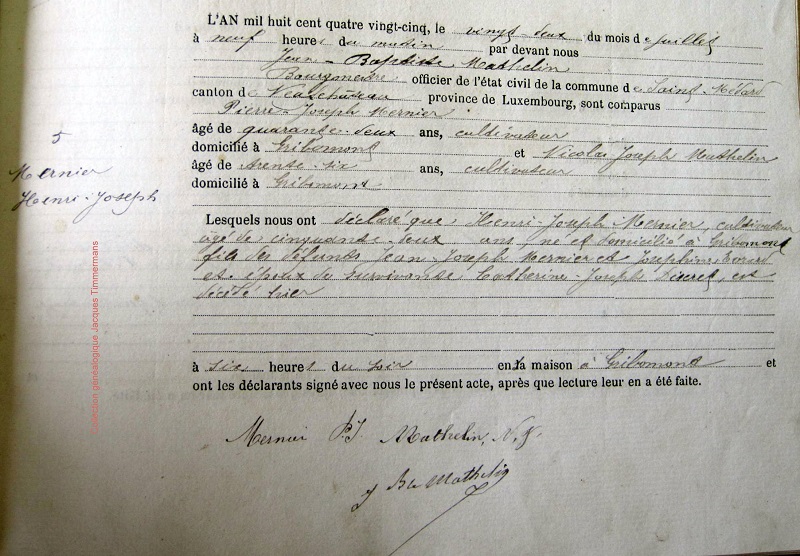 L'AN mil huit cent quatre vingt-cinq, le vingt-deux du mois de juillet
à neuf heures du matin par devant nous
Jean-Baptiste Mathelin
Bourgmestre officier de l'état civil de la commune de Saint-Médard
canton de Neufchâteau province de Luxembourg, sont comparus
Pierre-Joseph Mernier
âgé de quarante-deux ans, cultivateur
domicilié à Gribomont et Nicolas Joseph Mathelin
âgé de trente-six ans, cultivateur
domicilié à Gribomont
5
Mernier
Henri-Joseph
Lesquels nous ont déclaré que Henri-Joseph Mernier, cultivateur
âgé de cinquante-deux ans, né et domicilié à Gribomont
fils des défunts Jean-Joseph Mernier et Joséphine
et époux de survivante Catherine-Joseph est
décédé hier
à six heures du soir en sa maison à Gribomont et
ont les déclarants signé avec nous le présent acte, après que lecture leur en a été faite.
Mernier P.J. Mathelin, N.J.
J Bte Mathelin
Collection généalogique Jacques Timmermans